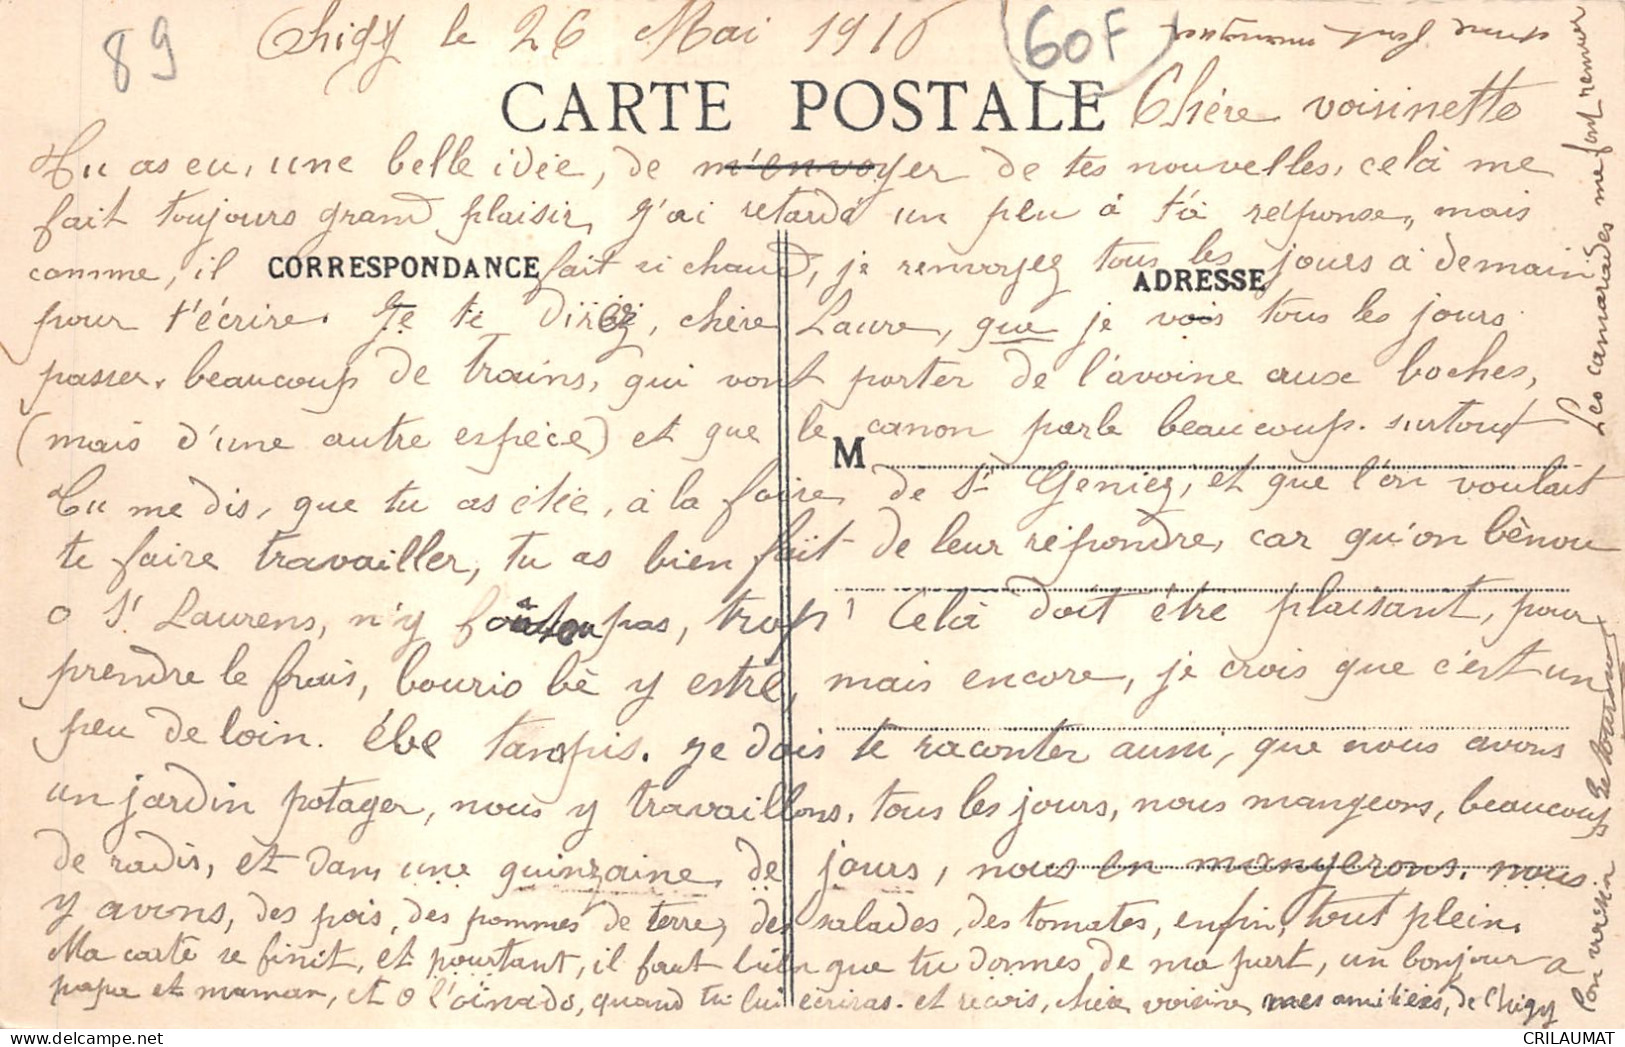 89
Chigy le 26 Mai 1916
60F
CARTE POSTALE
Chère voisinette
Tu as eu, une belle idée, de m'envoyer de tes nouvelles, celà me
fait toujours grand plaisir, j'ai retardé un peu à t'à reponse, mais
comme, il fait si chaud, je renvoyez tous les jours à demain
CORRESPONDANCE
ADRESSE
pour t'écrire. Je te direz, chère Laure, que je vois tous les jours
passer, beaucoup de trains, qui vont porter de l'avoine aux boches,
(mais d'une autre espèce) et que le canon parle beaucoup. surtout
M
Tu me dis, que tu as étée, à la foire, de St Geniez, et que l'on voulait
te faire travailler, tu as bien fait de leur répondre, car qu'on bènou
o St Laurens, n'y pas, trop! Celà doit être plaisant, pour
prendre le frais, bourio bè y estré, mais encore, je crois que c'est un
peu de loin. ébe tanpis. je dois te raconter aussi, que nous avons
un jardin potager, nous y travaillons, tous les jours, nous mangeons, beaucoup
de radis, et dans une quinzaine, de jours, nous en mangerons. nous
y avons, des pois, des pommes de terre, des salades, des tomates, enfin, tout plein.
Ma carte se finit, et pourtant, il faut bien que tu donnes de ma part, un bonjour a
papa et maman, et o l'oïnado, quand tu lui écriras. et reçois, chère voisine mes amitiés, de Chigy
Ton voisin
Les camarades me font renvier